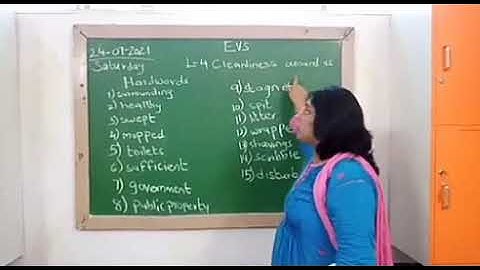 24-07-2021
Saturday
EVS
L=4 Cleanliness around us
Hardwords
1) surrounding
2) healthy
3) swept
4) mopped
5) toilets
6) sufficient
7) government
8) public property
9) stagn
10) spit
11) litter
12) wrappe
13) shavings
14) scribble
15) disturb